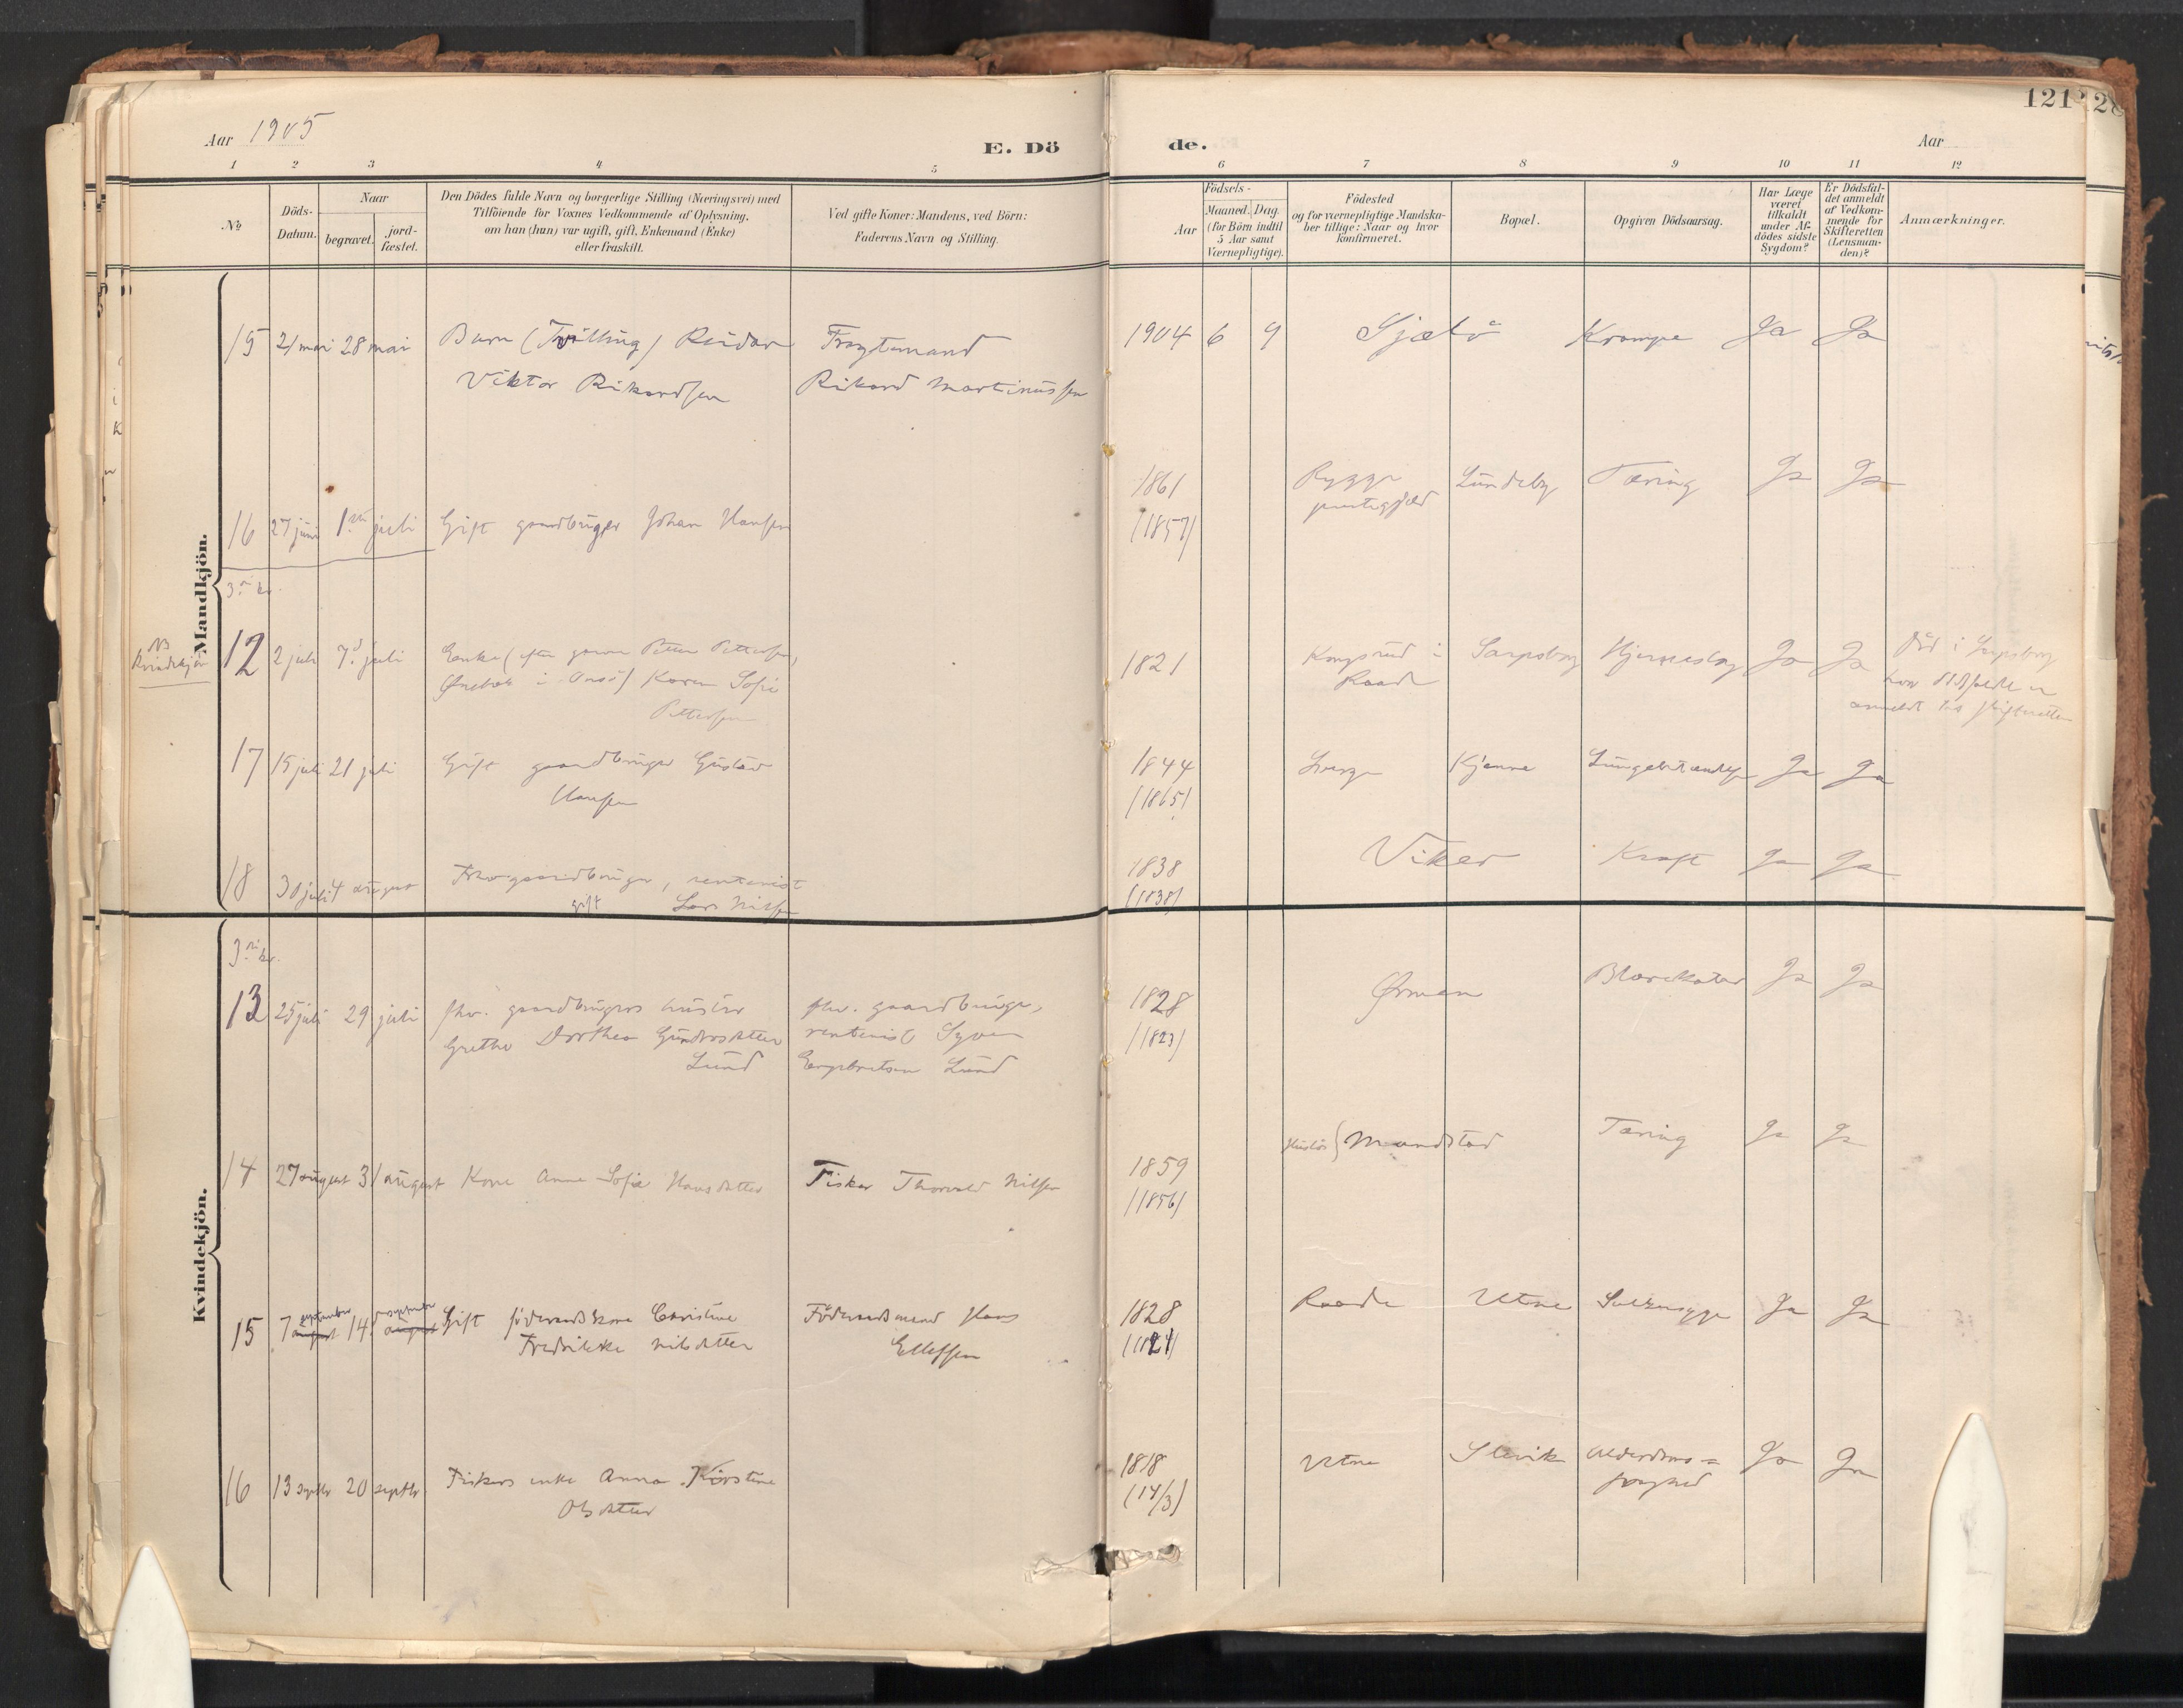 Aar 1905
E. Dö
de.
121
Aar
1 2 3 4 5 6 7 8 9 10 11 12
№
Döds-Datum.
Naar
begravet.
jord-fæstet.
Den Dödes fulde Navn og borgerlige Stilling (Næringsvei) med
Tilföiende for Voxnes Vedkommende af Oplysning,
om han (hun) var ugift, gift, Enkemand (Enke)
eller fraskilt.
Ved gifte Koner: Mandens, ved Börn:
Faderens Navn og Stilling.
Födsels-
Aar
Maaned. Dag.
(for Börn indtil
5 Aar samt
Værnepligtige).
Födested
og for værnepligtige Mandska-
ber tillige: Naar og hvor
konfirmeret.
Bopæl.
Opgiven Dödsaarsag.
Har Læge
været
tilkaldt
under Af-
dödes sidste
Sygdom?
Er Dödsfal-
det anmeldt
af Vedkom-
mende for
Skifteretten
(Lensman-
den)?
Anmærkninger.
Mandkjön.
15 21 mai 28 mai Barn (Tvilling) Reidar Fragtemand 1904 6 9 Sjælö Krampe Ja Ja
Viktor Rikardsen Rikard Martinussen
1861 Rygge Lundeby Tæring Ja Ja
16 27 juni 1ste juli Gift gaardbruger Johan Hansen (1857) prestegjeld
3 kr.
NB Kvindekjön
12 2 juli 7d juli Enke (efter Petter Pettersen, 1821 Kongsrud i Sarpsborg Hjerneslag Ja Ja Död i Sarpsborg
i Onsö) Karen Sofie Raade hvor dödsfaldet er
Pettersen anmeldt for skifteretten
17 15 juli 21 juli Gift gaardbruger Gustav 1844 Kjenne Lungebetændelse Ja Ja
Hansen (1865)
18 30 juli 4 august Fhv. gaardbruger, rentenist 1838 Viker Kræft Ja Ja
gift Lars Nilsen (1838)
Kvindekjön.
3 kr.
13 25 juli 29 juli fhv. gaardbrugers hustru fhv. gaardbruger, 1828 Ørmen Blærekatar Ja Ja
Grethe Dorthea Gundersdatter rentenist Syver (1823)
Lund Engebretsen Lund
14 27 august 31 august Kone Anne Sofie Hansdatter Fisker Thorvald Nilsen 1859 Huslös Mundstad Tæring Ja Ja
(1856)
15 7 september august 14d september august Gift föderaadskone Christine Föderaadsmand Hans 1828 Raade Utne Ja Ja
Fredrikke Nilsdatter Ellefsen (1824)
16 13 septbr 20 septbr Fiskers enke Anna Kirstine 1818 Utne Slevik Alderdoms= Ja Ja
Olsdatter (14/3)